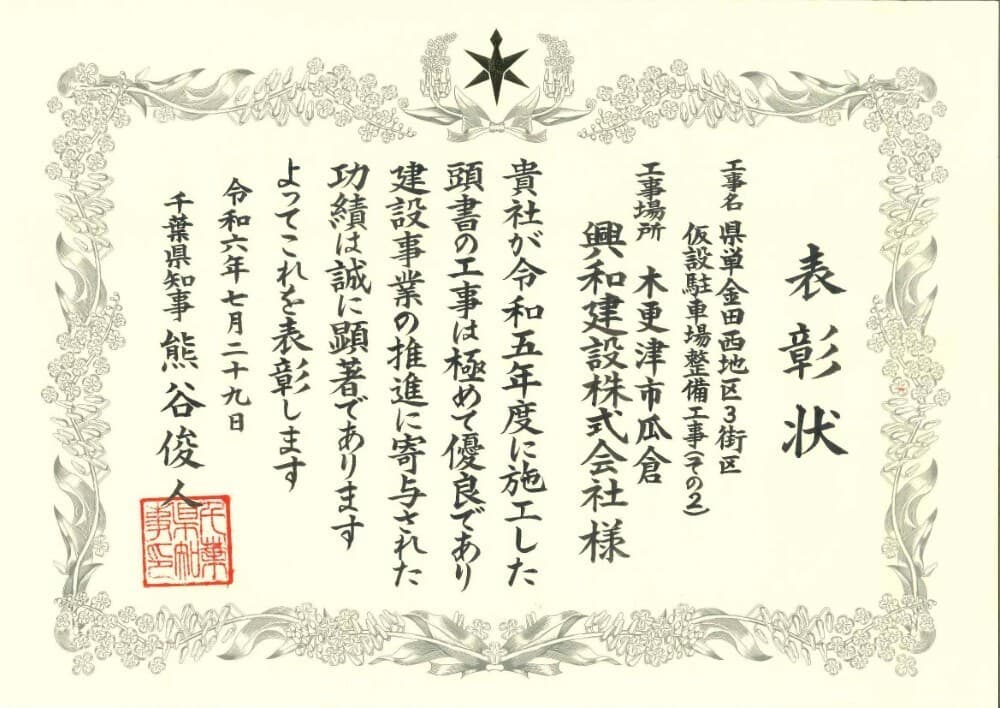 表彰状
工事名 県単金田西地区3街区
仮設駐車場整備工事(その2)
工事場所 木更津市瓜倉
興和建設株式会社様
貴社が令和五年度に施工した
頭書の工事は極めて優良であり
建設事業の推進に寄与された
功績は誠に顕著であります
よってこれを表彰します
令和六年七月二十九日
千葉県知事 熊谷俊人
千葉県知事印